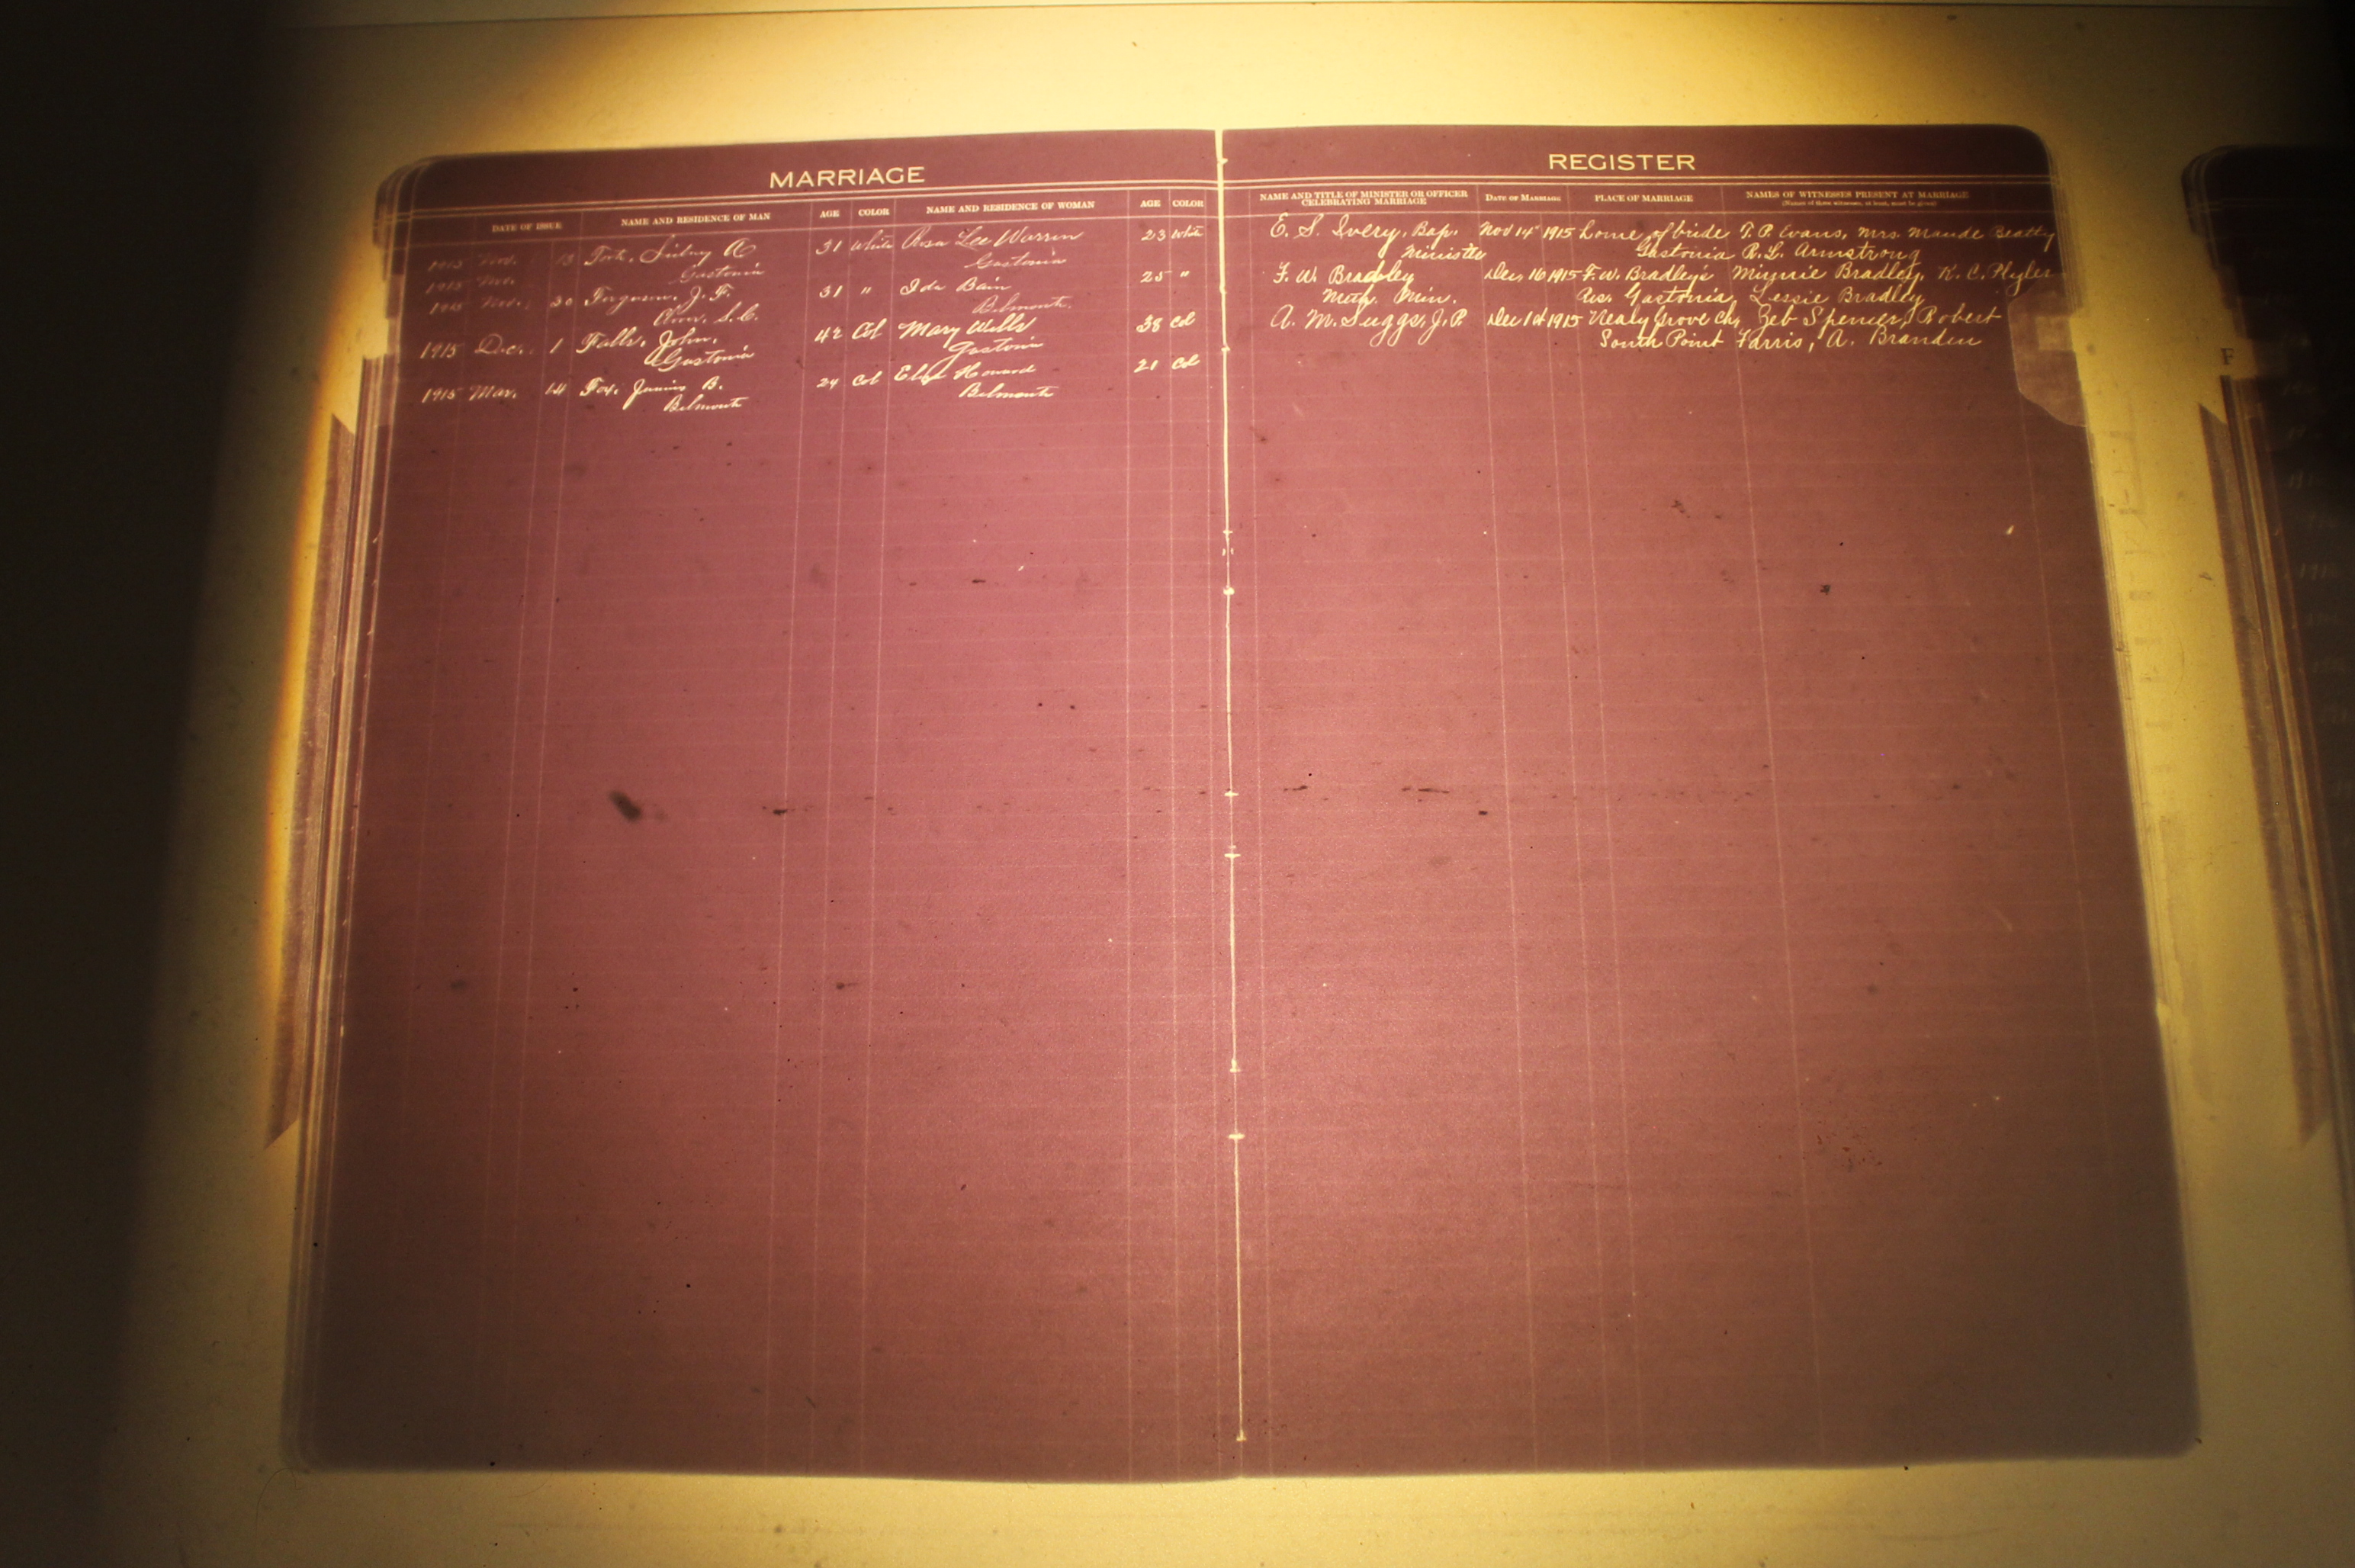 MARRIAGE
DATE OF ISSUE NAME AND RESIDENCE OF MAN AGE COLOR NAME AND RESIDENCE OF WOMAN AGE COLOR
1915 Nov. 13 Fort, Sidney A 31 White Rosa Lee Warren 23 White
Gastonia Gastonia
1915 Nov.
1915 Nov. 30 Ferguson, J. F. 31 " Ida Bain 25 "
S.C. Belmont.
1915 Dec. 1 Falls, John, 42 Col Mary Wells 38 Col
Gastonia Gastonia
1915 Mar. 14 Fox, Junius B. 24 Col Eliza Howard 21 Col
Belmont Belmont
REGISTER
NAME AND TITLE OF MINISTER OR OFFICER CELEBRATING MARRIAGE DATE OF MARRIAGE PLACE OF MARRIAGE NAMES OF WITNESSES PRESENT AT MARRIAGE
(Names of three witnesses, at least, must be given)
E. S. Ivery, Bap. Nov 14" 1915 home of bride T. P. Evans, Mrs. Maude Beatty
Minister Gastonia R. L. Armstrong
F. W. Bradley Dec. 16 1915 F. W. Bradley's Minnie Bradley, K. C. Plyler
Meth. Min. Res. Gastonia, Lessie Bradley
A. M. Suggs, J. P. Dec 1st 1915 Nealy Grove Ch, Zeb Spencer, Robert
South Point Farris, A. Brandon
F